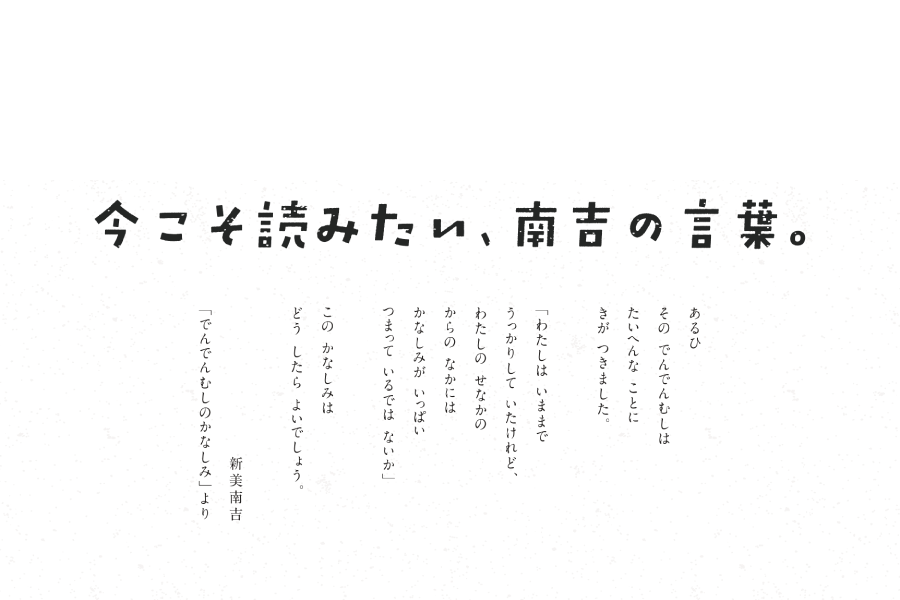 今こそ読みたい、南吉の言葉。
あるひ
その でんでんむしは
たいへんな ことに
きが つきました。
「わたしは いままで
うっかりして いたけれど、
わたしの せなかの
からの なかには
かなしみが いっぱい
つまって いるでは ないか」
この かなしみは
どう したら よいでしょう。
新美南吉
「でんでんむしのかなしみ」より